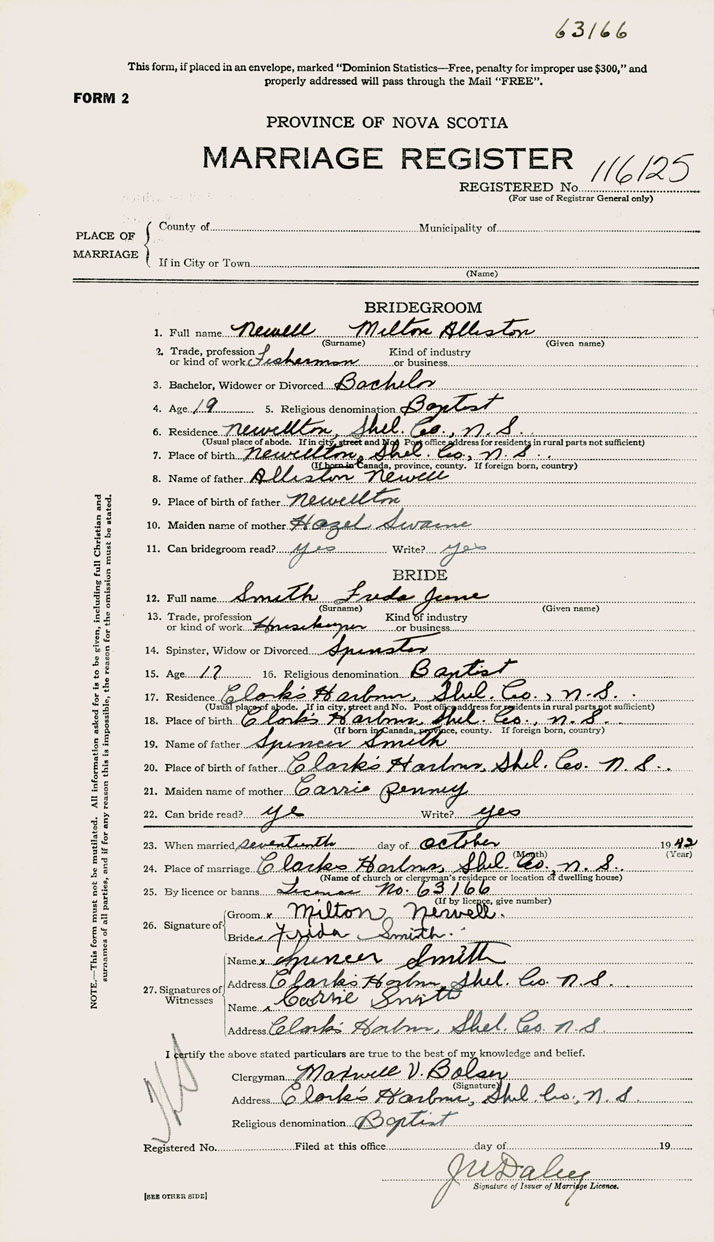 63166
This form, if placed in an envelope, marked "Dominion Statistics—Free, penalty for improper use $300," and
properly addressed will pass through the Mail "FREE".
FORM 2
PROVINCE OF NOVA SCOTIA
MARRIAGE REGISTER
REGISTERED No. 116125
(For use of Registrar General only)
PLACE OF MARRIAGE
County of Municipality of
If in City or Town
(Name)
BRIDEGROOM
1. Full name Newell Milton Alliston
(Surname) (Given name)
2. Trade, profession or kind of work Fisherman Kind of industry or business
3. Bachelor, Widower or Divorced Bachelor
4. Age 19 5. Religious denomination Baptist
6. Residence Newellton, Shel. Co., N.S.
(Usual place of abode. If in city, street and No. Post office address for residents in rural parts not sufficient)
7. Place of birth Newellton, Shel. Co., N.S.
(If born in Canada, province, county. If foreign born, country)
8. Name of father Alliston Newell
9. Place of birth of father Newellton
10. Maiden name of mother Hazel Swaine
11. Can bridegroom read? yes Write? yes
BRIDE
12. Full name Smith Freda June
(Surname) (Given name)
13. Trade, profession or kind of work Housekeeper Kind of industry or business
14. Spinster, Widow or Divorced Spinster
15. Age 17 16. Religious denomination Baptist
17. Residence Clark's Harbour, Shel. Co., N.S.
(Usual place of abode. If in city, street and No. Post office address for residents in rural parts not sufficient)
18. Place of birth Clark's Harbour, Shel. Co., N.S.
(If born in Canada, province, county. If foreign born, country)
19. Name of father Spencer Smith
20. Place of birth of father Clark's Harbour, Shel. Co. N.S.
21. Maiden name of mother Carrie Penney
22. Can bride read? ye Write? yes
23. When married, seventeenth day of October 1942
(Month) (Year)
24. Place of marriage Clark's Harbour, Shel. Co., N.S.
(Name of church or clergyman's residence or location of dwelling house)
25. By licence or banns License No. 63166
(If by licence, give number)
26. Signature of
Groom x Milton Newell.
Bride x Frida Smith.
27. Signatures of Witnesses
Name x Spencer Smith
Address Clark's Harbour, Shel. Co. N.S.
Name x Carrie Smith
Address Clark's Harbour, Shel. Co. N.S.
I certify the above stated particulars are true to the best of my knowledge and belief.
Clergyman Maxwell V. Bolser
(Signature)
Address Clark's Harbour, Shel. Co., N.S.
Religious denomination Baptist
Registered No. Filed at this office day of 19
J M Daley
Signature of Issuer of Marriage Licence.
[SEE OTHER SIDE]
NOTE.—This form must not be mutilated. All information asked for is to be given, including full Christian and
surnames of all parties, and if for any reason this is impossible, the reason for the omission must be stated.